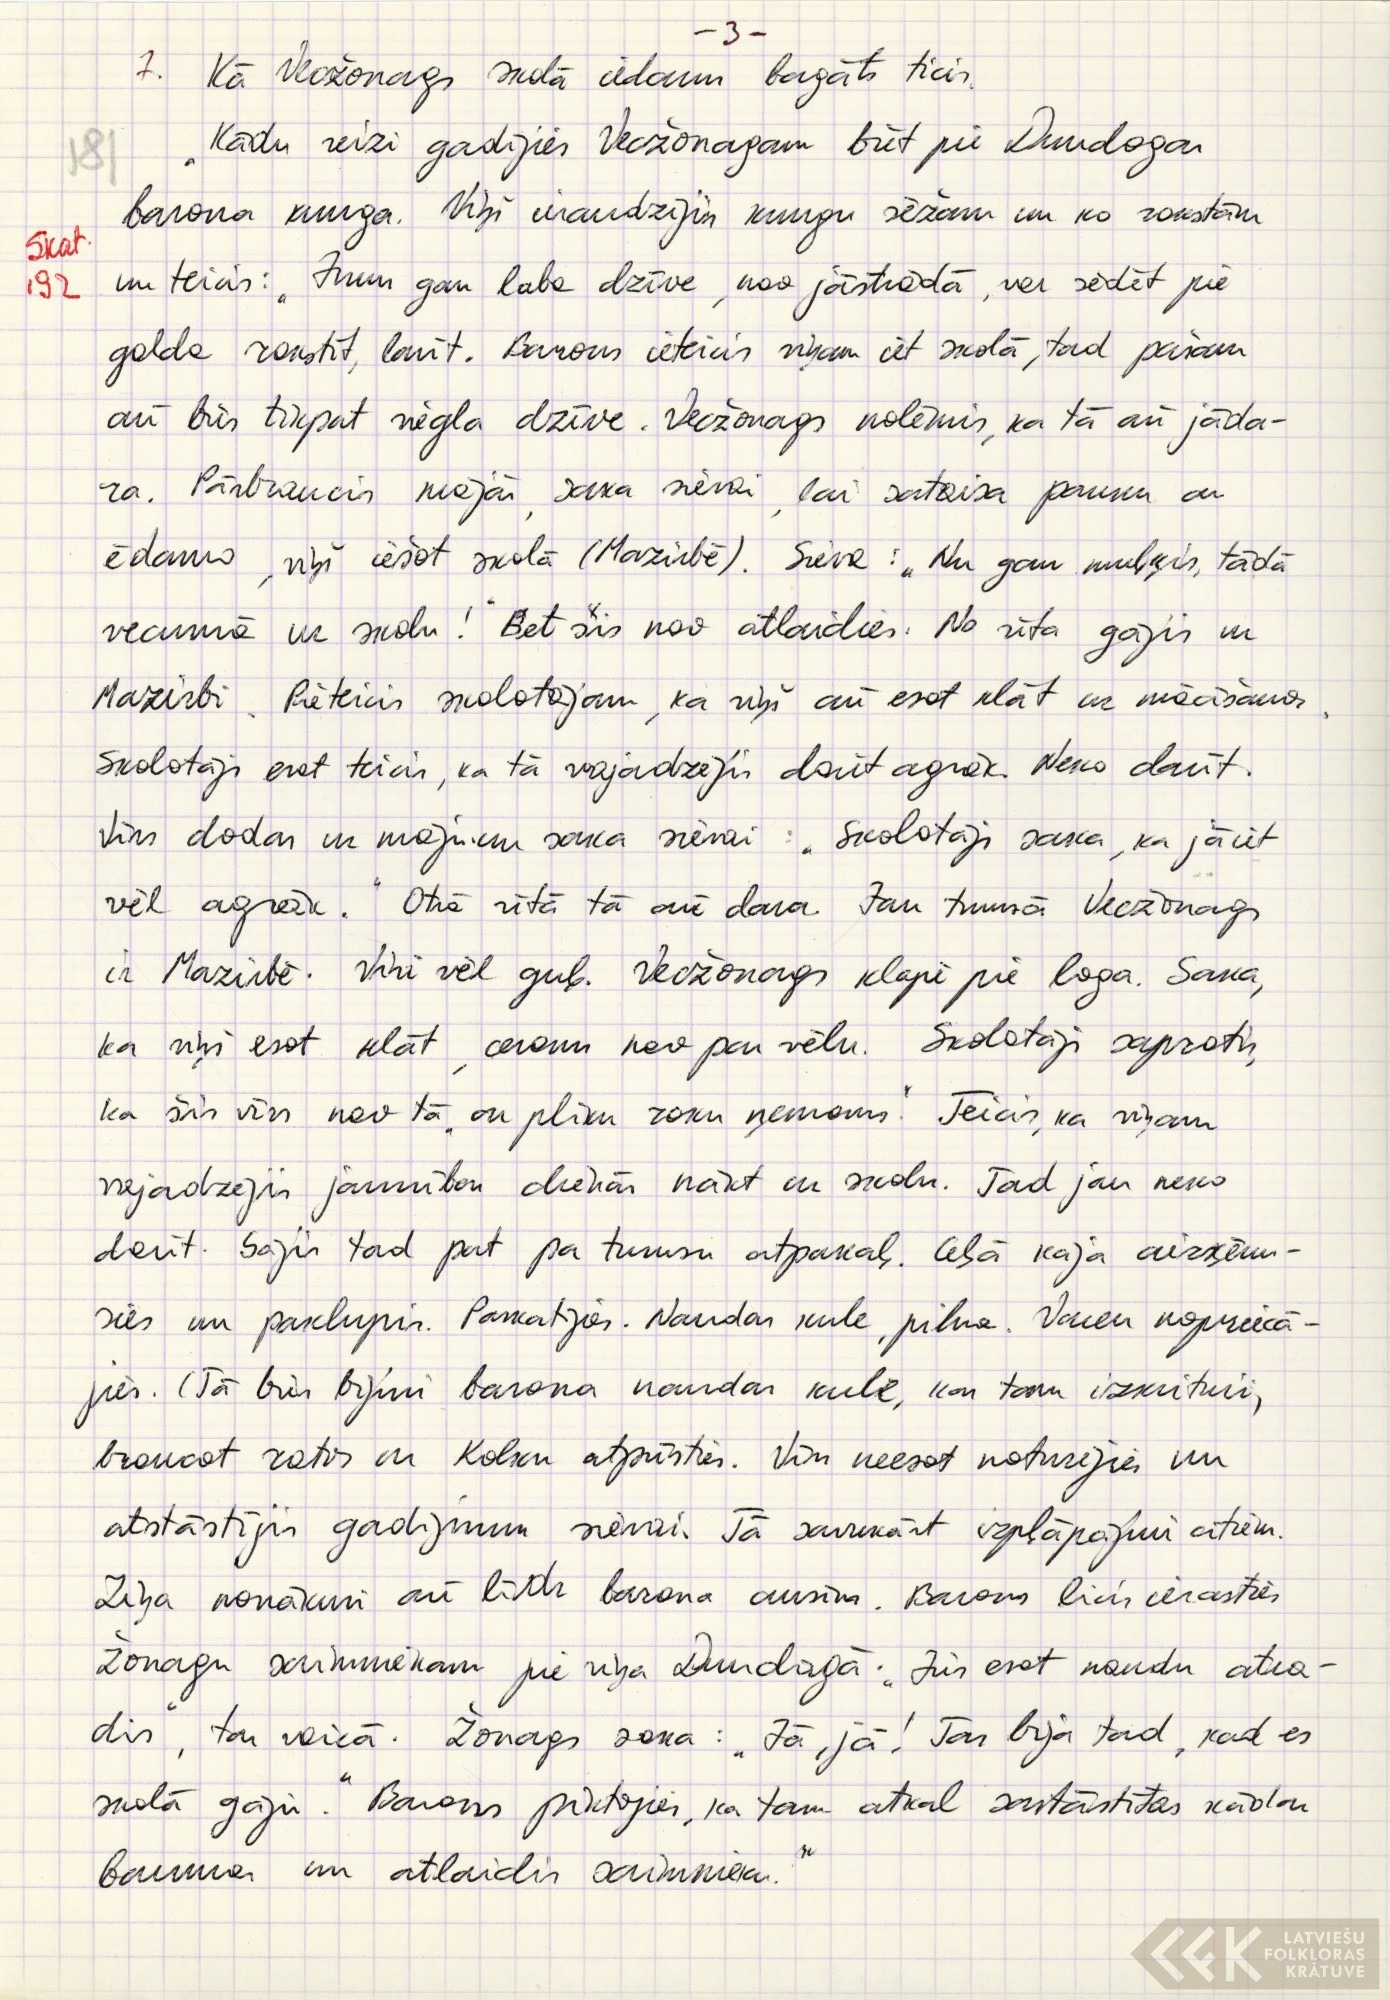 -3-
7. Kā Vecžonags skolā iedams bagāts ticis.
181
„Kādu reizi gadījies Vecžonagam būt pie Dundagas
barona kunga. Viņš ieraudzījis kungu sēžam un ko rakstām
Skat.
192
un teicis: „Jums gan laba dzīve, nav jāstrādā, var sēdēt pie
galda rakstīt, lasīt. Barons ieteicis viņam iet skolā, tad pašam
arī būs tikpat viegla dzīve. Vecžonags nolēmis, ka tā arī jāda-
ra. Pārbraucis mājās, saka sievai, lai sataisa paunu ar
ēdamo, viņš iešot skolā (Mazirbē). Sieva: „Nu gan muļķis, tādā
vecumā uz skolu!" Bet šis nav atlaidies. No rīta gājis uz
Mazirbi. Pieteicis skolotājam, ka viņš arī esot klāt uz mācīšanos.
Skolotājs esot teicis, ka tā vajadzējis darīt agrāk. Neko darīt.
Vīrs dodas uz mājām saka sievai: „Skolotājs saka, ka jāiet
vēl agrāk." Otrā rītā tā arī dara. Jau tumsā Vecžonags
ir Mazirbē. Visi vēl guļ. Vecžonags klapē pie loga. Saka,
ka viņš esot klāt, cerams nav par vēlu. Skolotājs sapratis,
ka šis vīrs nav tā „ar pliku roku ņemams". Teicis, ka viņam
vajadzējis jaunības dienās nākt uz skolu. Tad jau neko
darīt. Gājis tad pat pa tumsu atpakaļ. Ceļā kāja aizķēru-
sies un paklupis. Paskatījies. Naudas kule, pilna. Varen nopriecā-
jies. (Tā būs bijusi barona naudas kule, kas tam izkritusi,
braucot ratos uz Kolku atpūsties. Vīrs neesot noturējies un
atstāstījis gadījumu sievai. Tā savukārt izpļāpājusi citiem.
Ziņa nonākusi arī līdz barona ausīm. Barons licis ierasties
Žonagu saimniekam pie viņa Dundagā. „Jūs esot naudu atra-
dis", tas vaicā. Žonags saka: „Jā, jā! Tas bija tad, kad es
skolā gāju." Barons piktojies, ka tam atkal sastāstītas kādas
baumas un atlaidis saimnieku."
LATVIEŠU
FOLKLORAS
KRĀTUVE